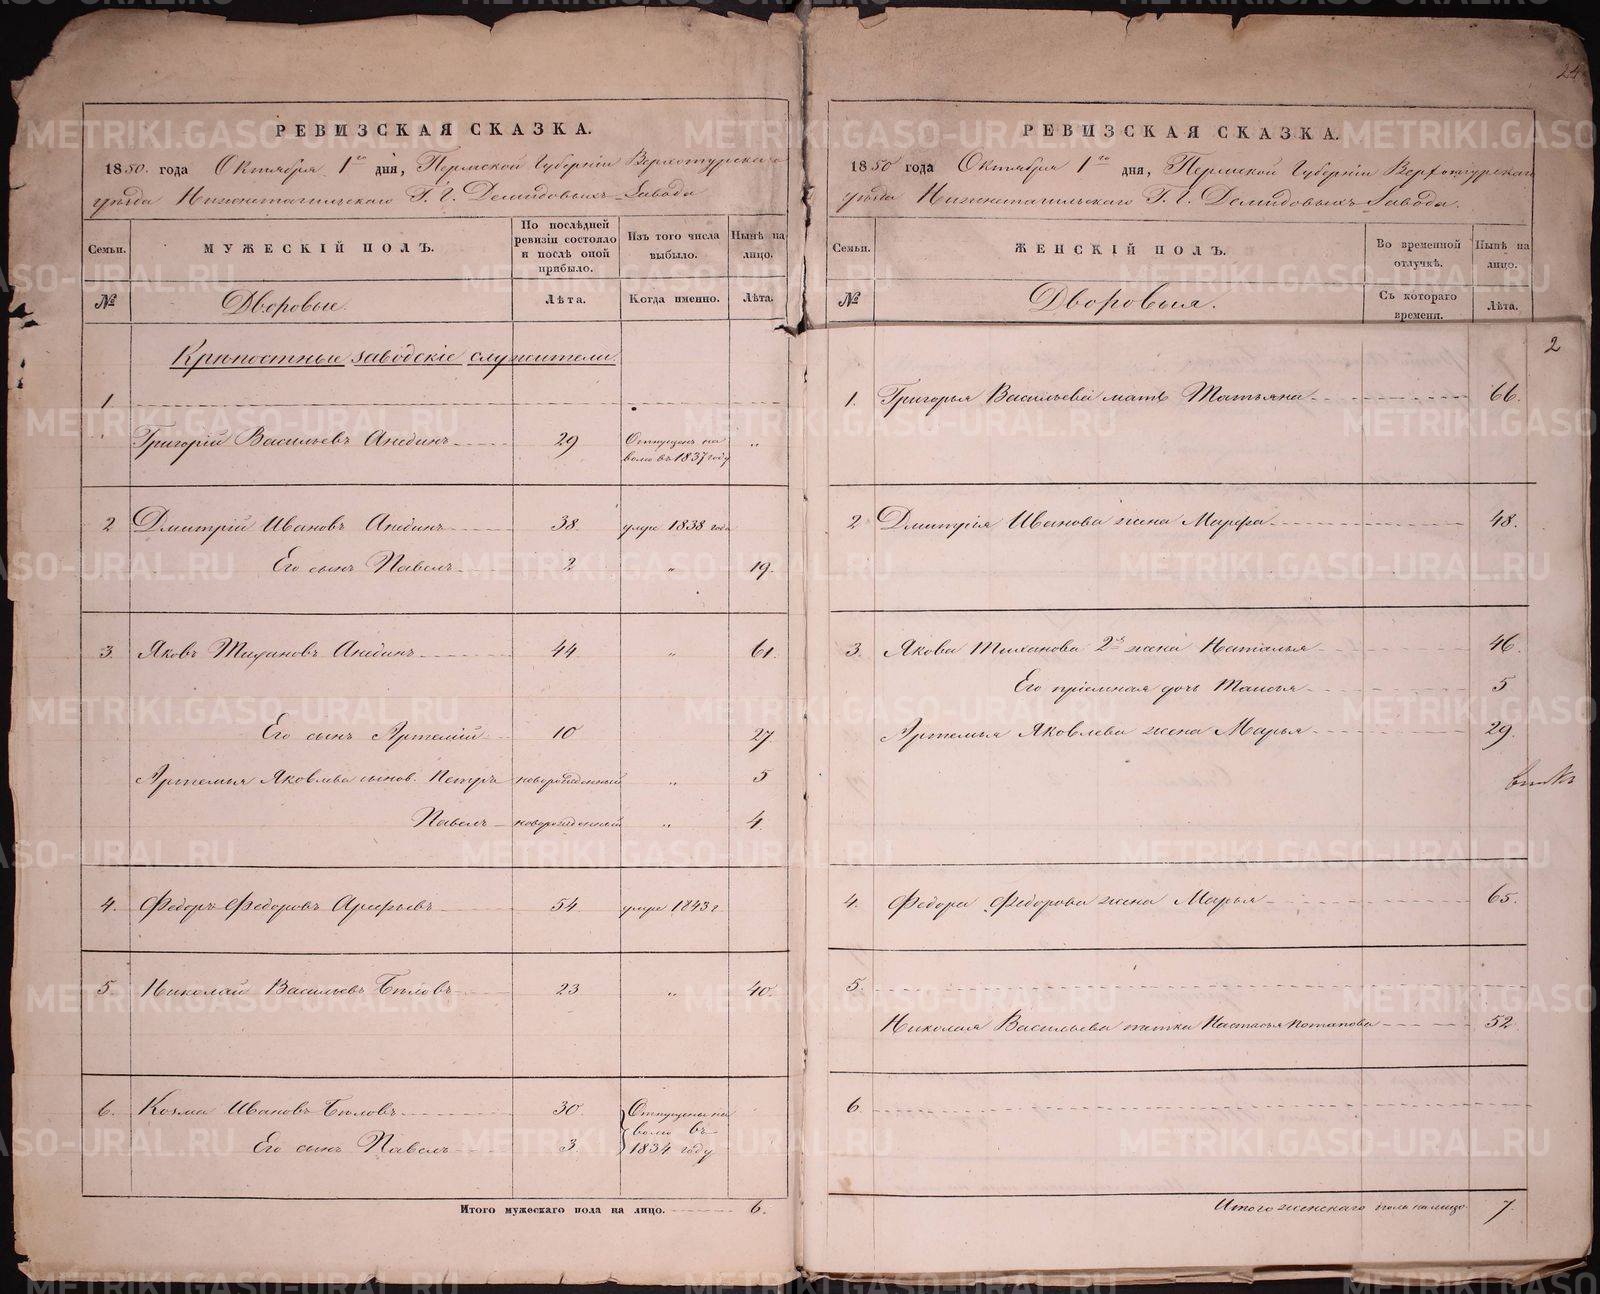 24
РЕВИЗСКАЯ СКАЗКА.
1850. года Октября 1го дня, Пермской Губернiи Верхотурскаго
уѣзда Нижнетагильскаго Г. Г. Демидовыхъ Завода
Семьи. МУЖЕСКIЙ ПОЛЪ. По послѣдней ревизiи состояло и послѣ оной прибыло. Изъ того числа выбыло. Нынѣ на лицо.
№ Дворовые. Лѣта. Когда именно. Лѣта.
Крѣпостные заводскiе служители.
1
Григорiй Васильевъ 29 Отпущенъ на волю въ 1837 году „
2 Дмитрiй Ивановъ 38 умре 1838 года
Его сынъ Павелъ 2 „ 19.
3. Яковъ Тихановъ 44 „ 61.
Его сынъ Артемiй 10 27
Артемья Яковлева сынов. Петръ новорожденный „ 5
Павелъ новорожденный „ 4.
4. Федоръ Федоровъ Арефьевъ 54 умре 1843 г
5 Николай Васильевъ Бѣловъ 23 „ 40.
6. Козма Ивановъ Бѣловъ 30 Отпущены на
Его сынъ Павелъ 3 волю въ 1834 году
Итого мужескаго пола на лицо. 6.
РЕВИЗСКАЯ СКАЗКА.
1850 года Октября 1го дня, Пермской Губернiи Верхотурскаго
уѣзда Нижнетагильскаго Г. Г. Демидовыхъ Завода.
Семьи. ЖЕНСКIЙ ПОЛЪ. Во временной отлучкѣ. Нынѣ на лицо.
№ Дворовыя. Съ котораго времени. Лѣта.
2
1. Григорья Васильева мать Татьяна 66.
2 Дмитрiя Иванова жена Марфа 48.
3. Якова Тиханова 2я жена Наталья 46.
Его прiемная дочь Таисья 5
Артемья Яковлева жена Марья 29.
4. Федора Федорова жена Марья 65.
5.
Николая Васильева тетка Настасья Потапова 52
6
Итого женскаго пола на лицо 7.
METRIKI.GASO-URAL.RU